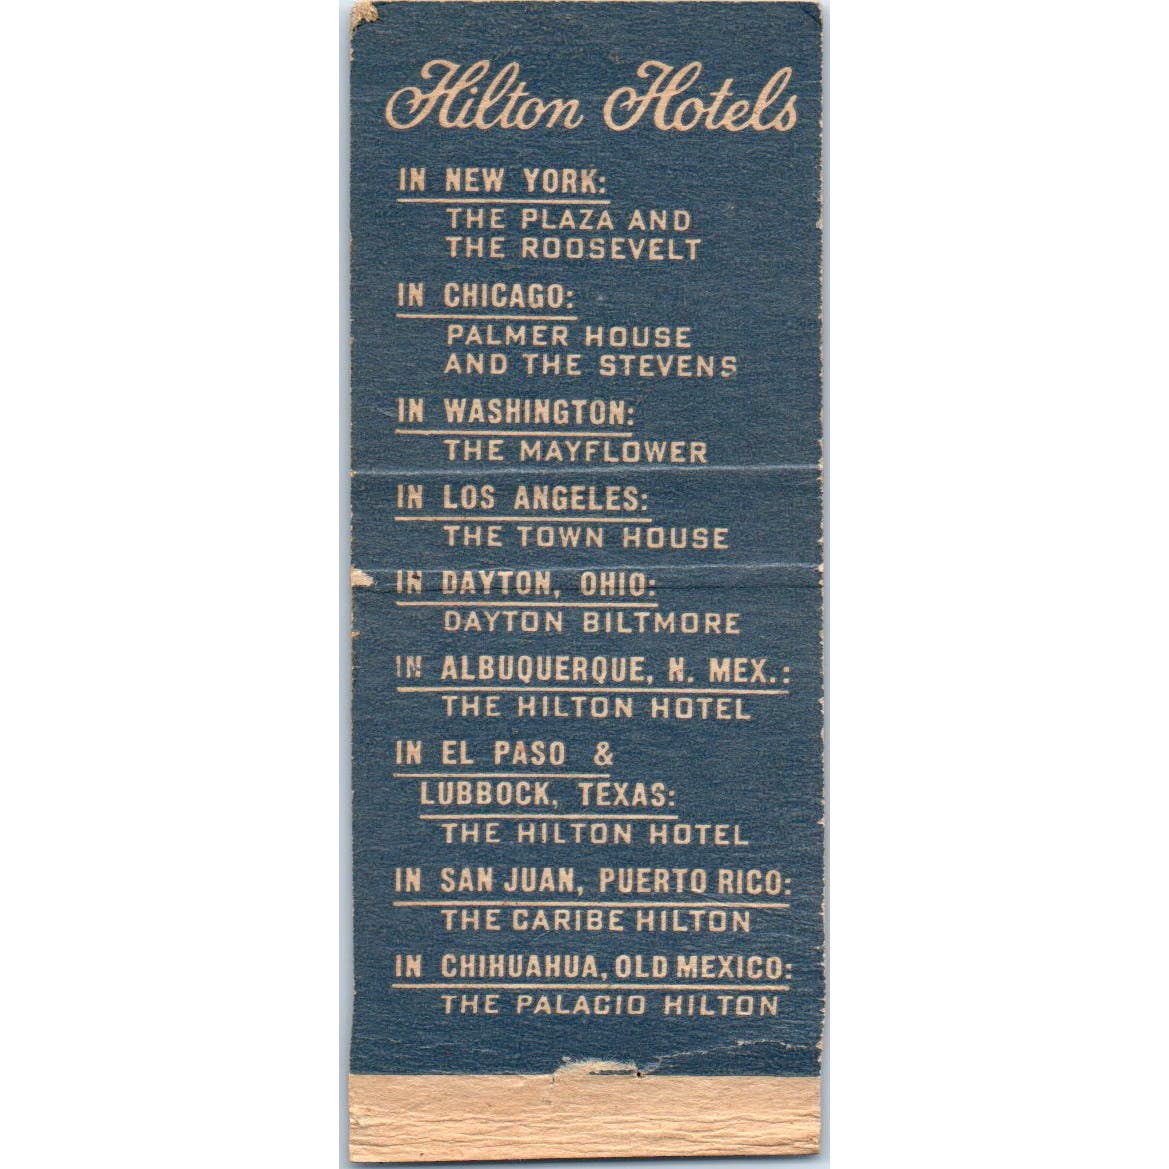 Hilton Hotels
IN NEW YORK:
THE PLAZA AND
THE ROOSEVELT
IN CHICAGO:
PALMER HOUSE
AND THE STEVENS
IN WASHINGTON:
THE MAYFLOWER
IN LOS ANGELES:
THE TOWN HOUSE
IN DAYTON, OHIO:
DAYTON BILTMORE
IN ALBUQUERQUE, N. MEX.:
THE HILTON HOTEL
IN EL PASO &
LUBBOCK, TEXAS:
THE HILTON HOTEL
IN SAN JUAN, PUERTO RICO:
THE CARIBE HILTON
IN CHIHUAHUA, OLD MEXICO:
THE PALACIO HILTON